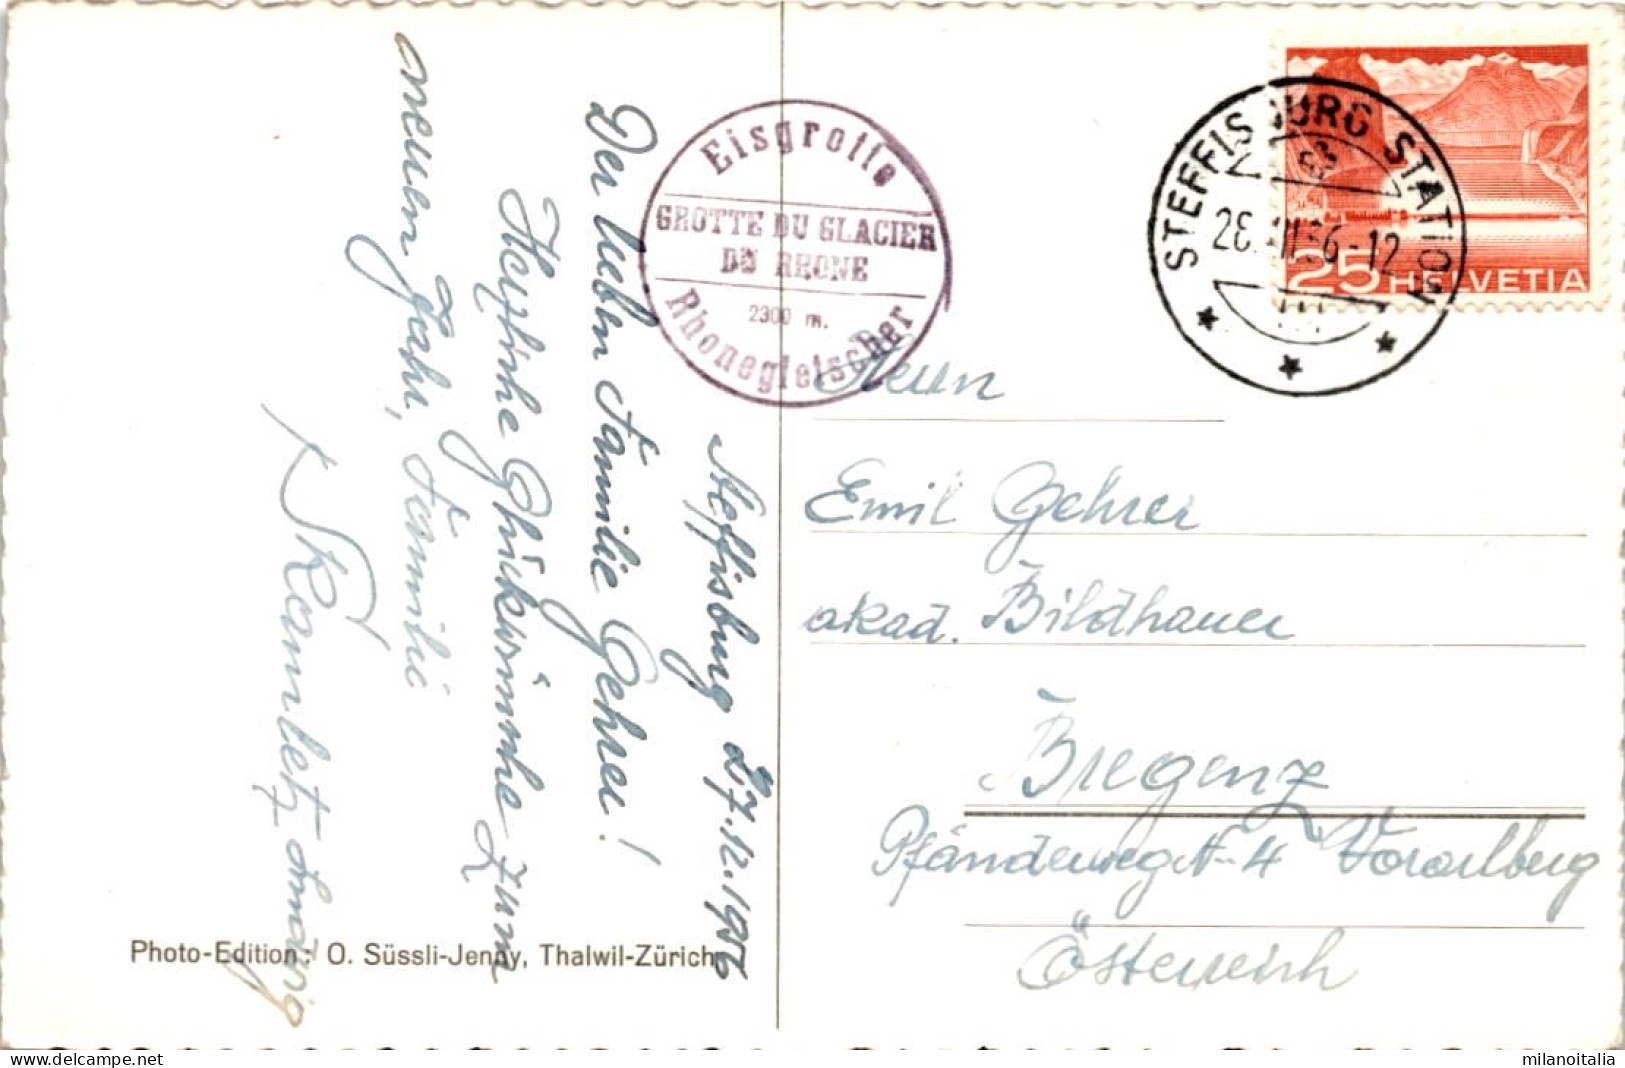 Steffisburg 27.12.1956
Der lieben Familie Gehrer!
Herzliche Glückwünsche zum
neuen Jahr, Familie
Eisgrotte
GROTTE DU GLACIER
DU RHONE
2300 m.
Rhonegletscher
STEFFISBURG STATION
HELVETIA
25
Herrn
Emil Gehrer
akad. Bildhauer
Bregenz
Pfänderweg N-4 Vorarlberg
Österreich
Photo-Edition: O. Süssli-Jenny, Thalwil-Zürich
www.delcampe.net
milanoitalia